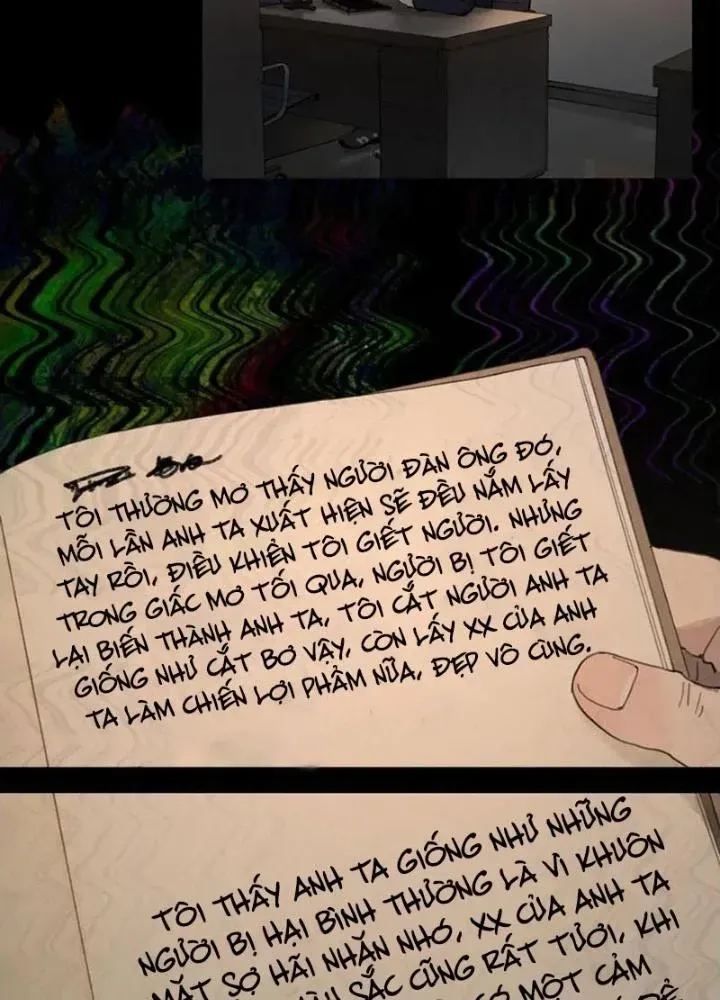 TÔI THƯỜNG MƠ THẤY NGƯỜI ĐÀN ÔNG ĐÓ,
MỖI LẦN ANH TA XUẤT HIỆN SẼ ĐỀU NẮM LẤY
TAY RỒI, ĐIỀU KHIỂN TÔI GIẾT NGƯỜI. NHƯNG
TRONG GIẤC MƠ TỐI QUA, NGƯỜI BỊ TÔI GIẾT
LẠI BIẾN THÀNH ANH TA, TÔI CẮT NGƯỜI ANH TA
GIỐNG NHƯ CẮT BƠ VẬY, CÒN LẤY XX CỦA ANH
TA LÀM CHIẾN LỢI PHẨM NỮA, ĐẸP VÔ CÙNG.
TÔI THẤY ANH TA GIỐNG NHƯ NHỮNG
NGƯỜI BỊ HẠI BÌNH THƯỜNG LÀ VÌ KHUÔN
MẶT SỢ HÃI NHĂN NHÓ, XX CỦA ANH TA
SẮC CŨNG RẤT TƯƠI, KHI
CÓ MỘT CẢM
ĐỂ